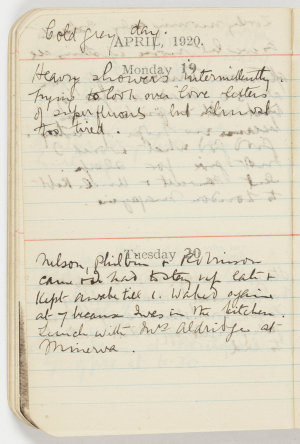 Cold grey day.
APRIL, 1920.
Monday 19
Heavy showers intermittently.
Trying to look over love letters
of superfluous but almost
too tired.
Tuesday 20
Nelson, Philben & Robinson
came & had to stay up late &
kept awake till 1. Waked again
at 7 because Ines in the kitchen.
Lunch with Mrs Aldridge at
Minerva.